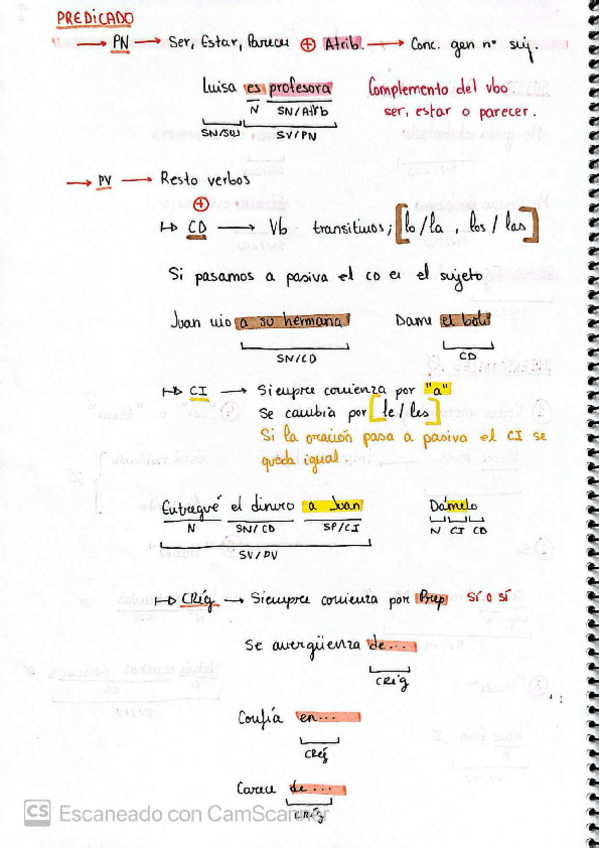 PREDICADO
→ PN → Ser, Estar, Parecer ⊕ Atrib. → Conc. gen nº suj.
Luisa es profesora
Complemento del vbo
ser, estar o parecer.
N SN/Atrb
SN/SUJ SV/PN
→ PV → Resto verbos
⊕
↦ CD → Vb transitivos; [lo/la, los/las]
Si pasamos a pasiva el CD es el sujeto
Juan vio a su hermana Dame el boli
SN/CD CD
↦ CI → Siempre comienza por "a"
Se cambia por [le/les]
Si la oración pasa a pasiva el CI se
queda igual
Entregué el dinero a Juan Dámelo
N SN/CD SP/CI N CI CD
SV/PV
↦ CRég → Siempre comienza por Prep sí o sí
Se avergüenza de...
CRég
Confía en...
CRég
Carece de...
CRég
CS Escaneado con CamScanner